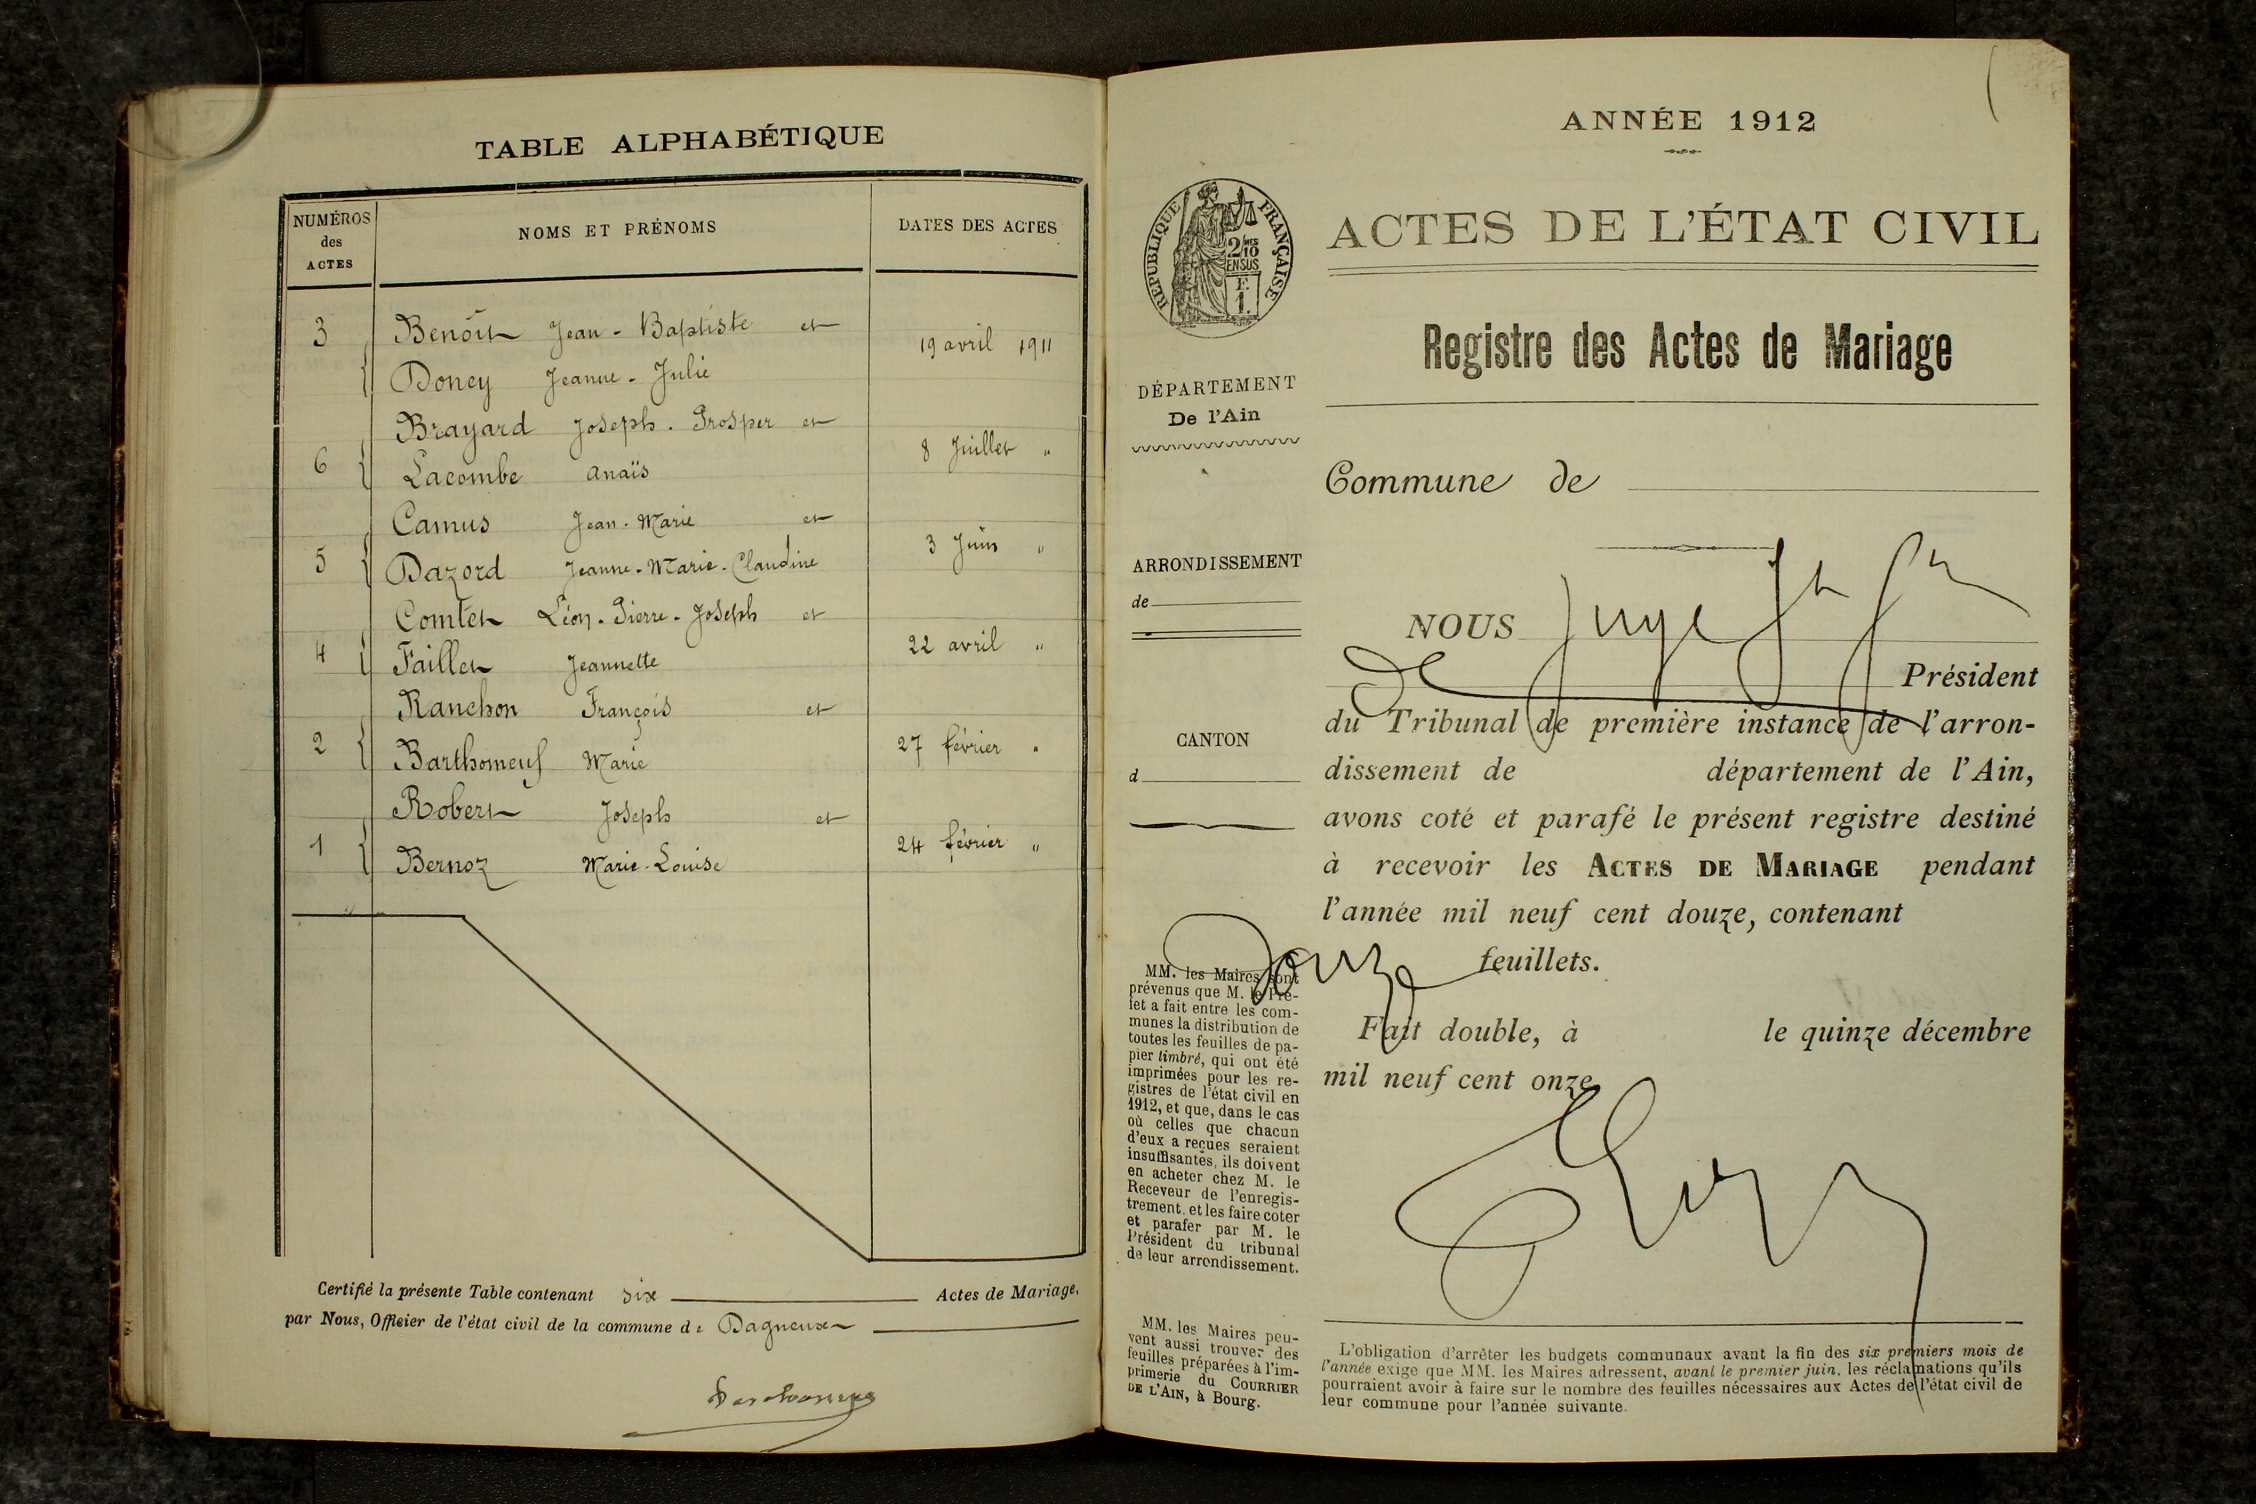 TABLE ALPHABÉTIQUE
NUMÉROS des ACTES
NOMS ET PRÉNOMS
DATES DES ACTES
3 Benoît Jean-Baptiste et
19 avril 1911
Doney Jeanne-Julie
Brayard Joseph-Prosper et
6 8 Juillet "
Lacombe Anaïs
Camus Jean-Marie et
5 3 Juin "
Dazord Jeanne-Marie-Claudine
Comtet Léon-Pierre-Joseph et
4 22 avril "
Faillet Jeannette
Ranchon François et
2 27 février "
Barthomeuf Marie
Robert Joseph et
1 24 février "
Bernoz Marie-Louise
Certifié la présente Table contenant six Actes de Mariage,
par Nous, Officier de l'état civil de la commune de Dagneux
ANNÉE 1912
RÉPUBLIQUE FRANÇAISE
2/10 EN SUS
E.
1.
ACTES DE L'ÉTAT CIVIL
Registre des Actes de Mariage
DÉPARTEMENT
De l'Ain
Commune de
ARRONDISSEMENT
de
CANTON
d
NOUS Juge
de Président
du Tribunal de première instance de l'arron-
dissement de département de l'Ain,
avons coté et parafé le présent registre destiné
à recevoir les ACTES DE MARIAGE pendant
l'année mil neuf cent douze, contenant
Douze feuillets.
Fait double, à le quinze décembre
mil neuf cent onze
MM. les Maires sont
prévenus que M. le Pré-
fet a fait entre les com-
munes la distribution de
toutes les feuilles de pa-
pier timbré, qui ont été
imprimées pour les re-
gistres de l'état civil en
1912, et que, dans le cas
où celles que chacun
d'eux a reçues seraient
insuffisantes, ils doivent
en acheter chez M. le
Receveur de l'enregis-
trement, et les faire coter
et parafer par M. le
Président du tribunal
de leur arrondissement.
MM. les Maires peu-
vent aussi trouver des
feuilles préparées à l'im-
primerie du COURRIER
DE L'AIN, à Bourg.
L'obligation d'arrêter les budgets communaux avant la fin des six premiers mois de
l'année exige que MM. les Maires adressent, avant le premier juin, les réclamations qu'ils
pourraient avoir à faire sur le nombre des feuilles nécessaires aux Actes de l'état civil de
leur commune pour l'année suivante.